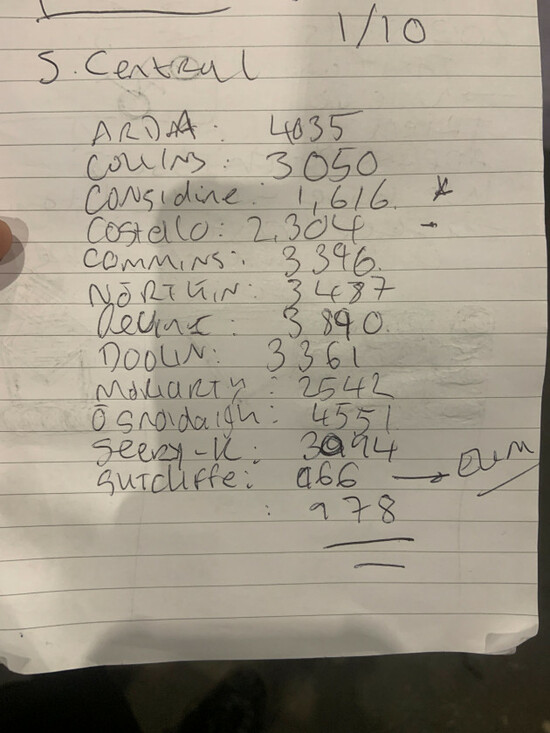 1/10
S. Central
ARDAA: 4035
COLLINS: 3050
Considine: 1,616. *
Costalo: 2,304 -
COMMINS: 3396.
3487
Devine: 3890.
DOOLIN: 3361
MORIARTY: 2542
Ósnodaigh: 4551
Seery-K: 3994
SUTCLIFFE: 966 → ELIM
: 978